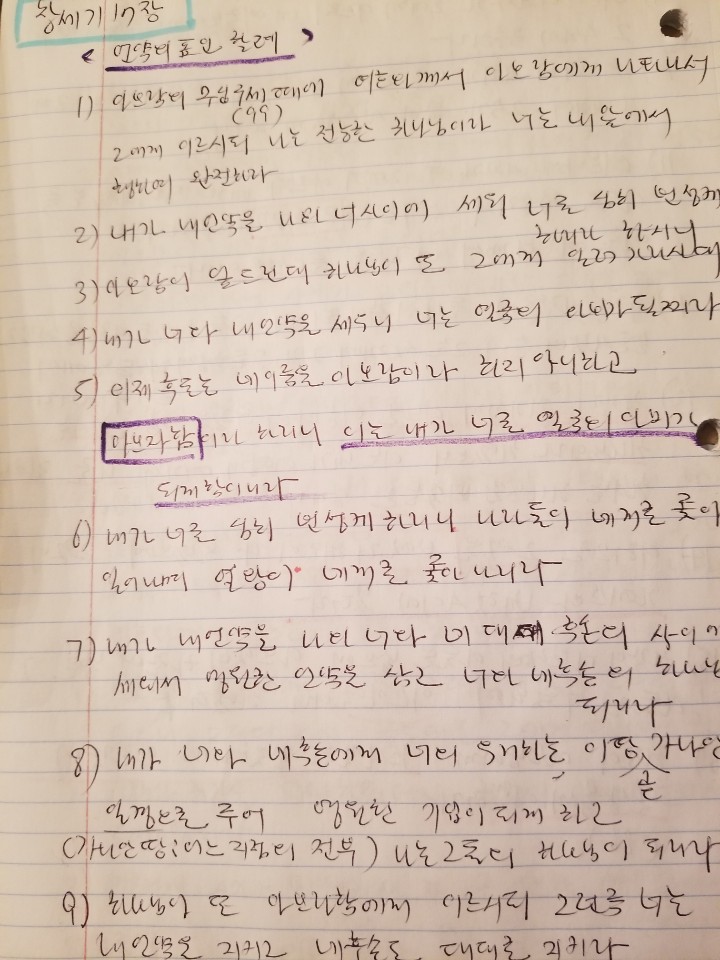 창세기 17장
< 언약의 표인 할례 >
1) 아브람의 구십구세 때에 여호와께서 아브람에게 나타나서
(99)
그에게 이르시되 나는 전능한 하나님이라 너는 내앞에서
행하여 완전하라
2) 내가 내언약을 나와 너사이에 세워 너로 심히 번성케
하리라 하시니
3) 아브람이 엎드린대 하나님이 또 그에게 일러 가라사대
4) 내가 너와 내언약을 세우니 너는 열국의 아비가 될찌라
5) 이제 후로는 네이름을 아브람이라 하지 아니하고
아브라함이라 하리니 이는 내가 너로 열국의 아비가
되게 함이니라
6) 내가 너로 심히 번성케 하리니 나라들이 네게로 좇아
일어나며 열왕이 네게로 좇아 나리라
7) 내가 내언약을 나와 너와 네 대대 후손의 사이에
세워서 영원한 언약을 삼고 너와 네후손의 하나님
되리라
8) 내가 너와 네후손에게 너의 우거하는 이땅 가나안
곧
일경으로 주어 영원한 기업이 되게 하고
(가나안땅; 어느지점의 전부) 나는 그들의 하나님이 되리라
9) 하나님이 또 아브라함에게 이르시되 그런즉 너는
내언약을 지키고 네후손도 대대로 지키라